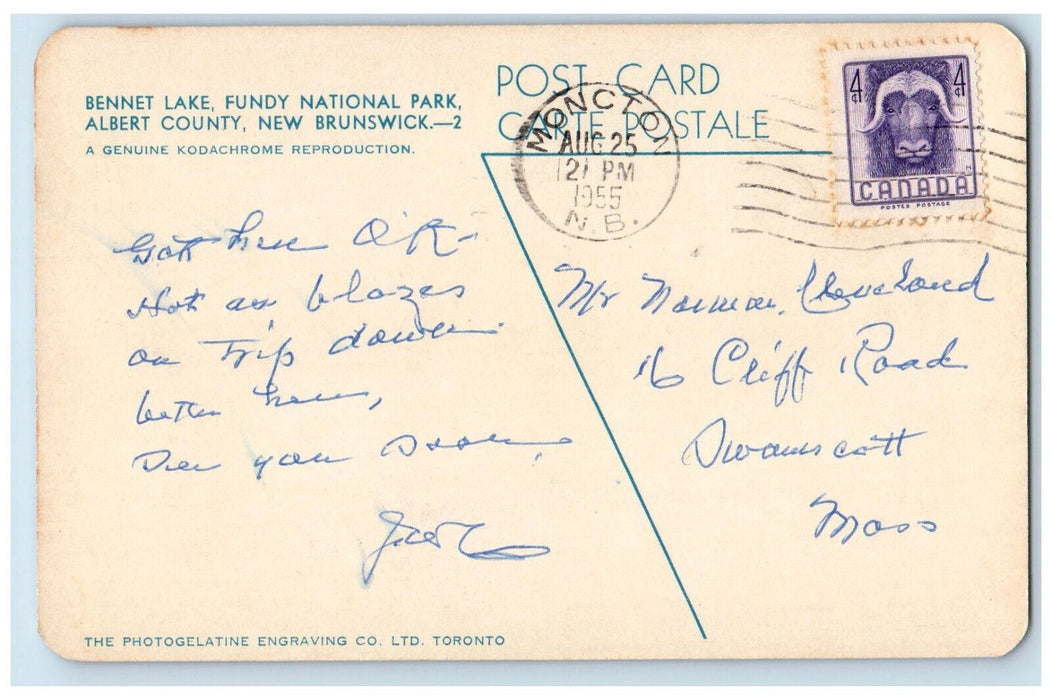 BENNET LAKE, FUNDY NATIONAL PARK,
ALBERT COUNTY, NEW BRUNSWICK.—2
A GENUINE KODACHROME REPRODUCTION.
POST CARD
CARTE POSTALE
MONCTON
AUG 25
PM
1955
N.B.
4¢ 4¢
CANADA
POSTES POSTAGE
Gott here O.K.
Hot as blazes
on trip down
better here,
See you soon.
Jack
Mr Norman Cleveland
16 Cliff Road
Swampscott
Mass
THE PHOTOGELATINE ENGRAVING CO. LTD. TORONTO